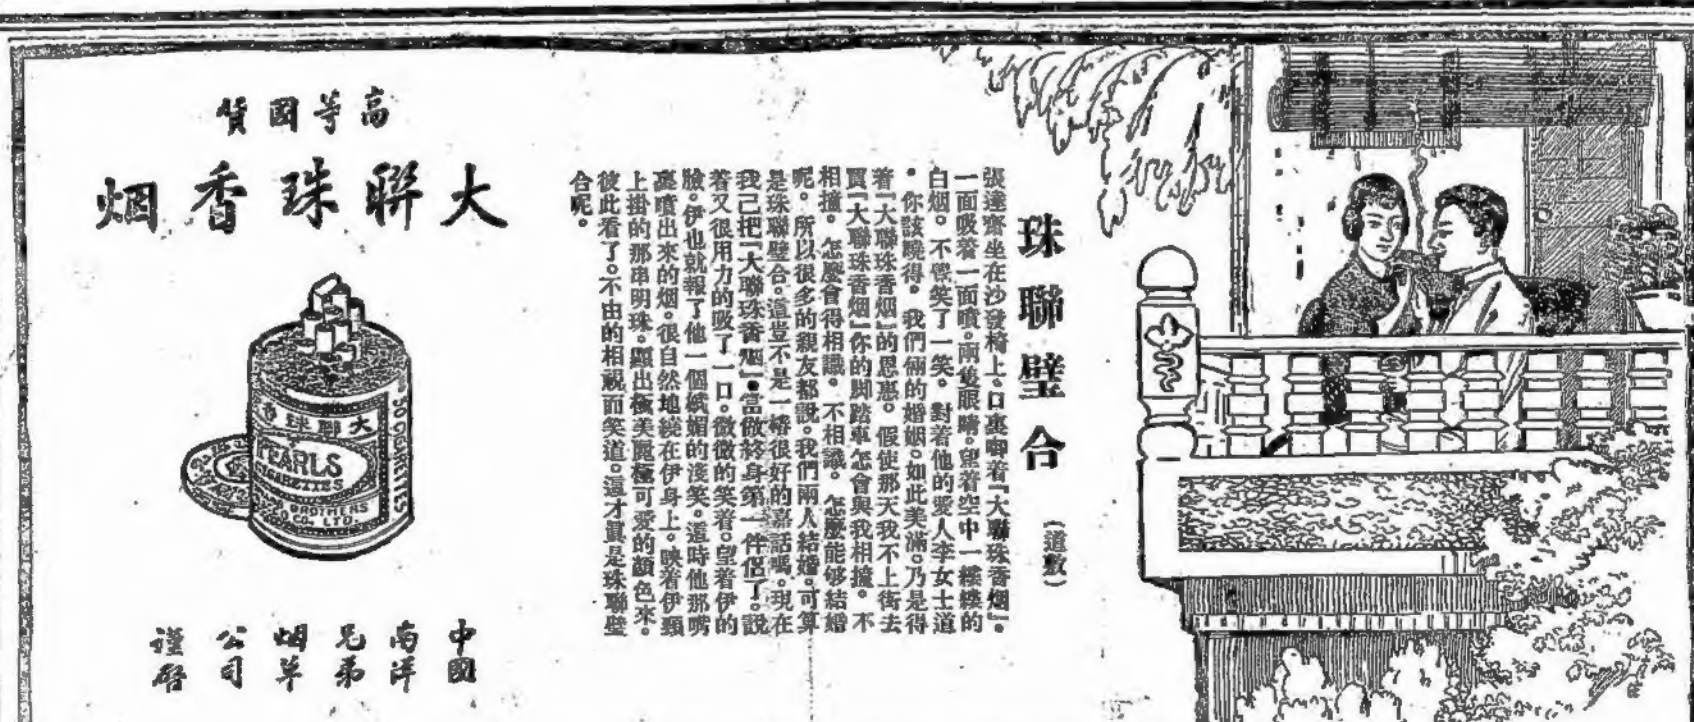 珠聯璧合
張達齋坐在沙發椅上。口裏啣着「大聯珠香烟」。
一面吸着一面噴。兩隻眼睛。望着空中一縷縷的
白烟。不覺笑了一笑。對着他的愛人李女士道
。你該曉得。我們倆的婚姻。如此美滿。乃是得
着「大聯珠香烟」的恩惠。假使那天我不上街去
買「大聯珠香烟」你的脚踏車怎會與我相撞。不
相撞。怎麽會得相識。不相識。怎麽能够結婚
呢。所以很多的親友都說。我們兩人結婚。可算
是珠聯璧合。這豈不是一樁很好的嘉話嗎。現在
我已把「大聯珠香烟」。當做終身第一伴侶了。說
着又很用力的吸了一口。微微的笑着。望着伊的
臉。伊也就報了他一個嫵媚的淺笑。這時他那嘴
裏噴出來的烟。很自然地繞在伊身上。映着伊頸
上掛的那串明珠。顯出極美麗極可愛的顏色來。
彼此看了。不由的相視而笑道。這才眞是珠聯璧
合呢。
高等國貨
大聯珠香烟
50 CIGARETTES
大聯珠香
PEARLS
CIGARETTES
BROTHERS
CO., LTD.
中國
南洋
兄弟
烟草
公司
謹啓